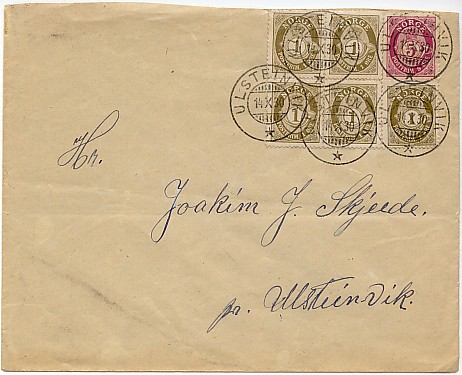 NORGE NORGE NORGE
1 1 5
ULSTEINVIK
14 X 30
NORGE NORGE NORGE
1 1 1
Hr.
Joakim J. Skjeide.
pr. Ulsteinvik.